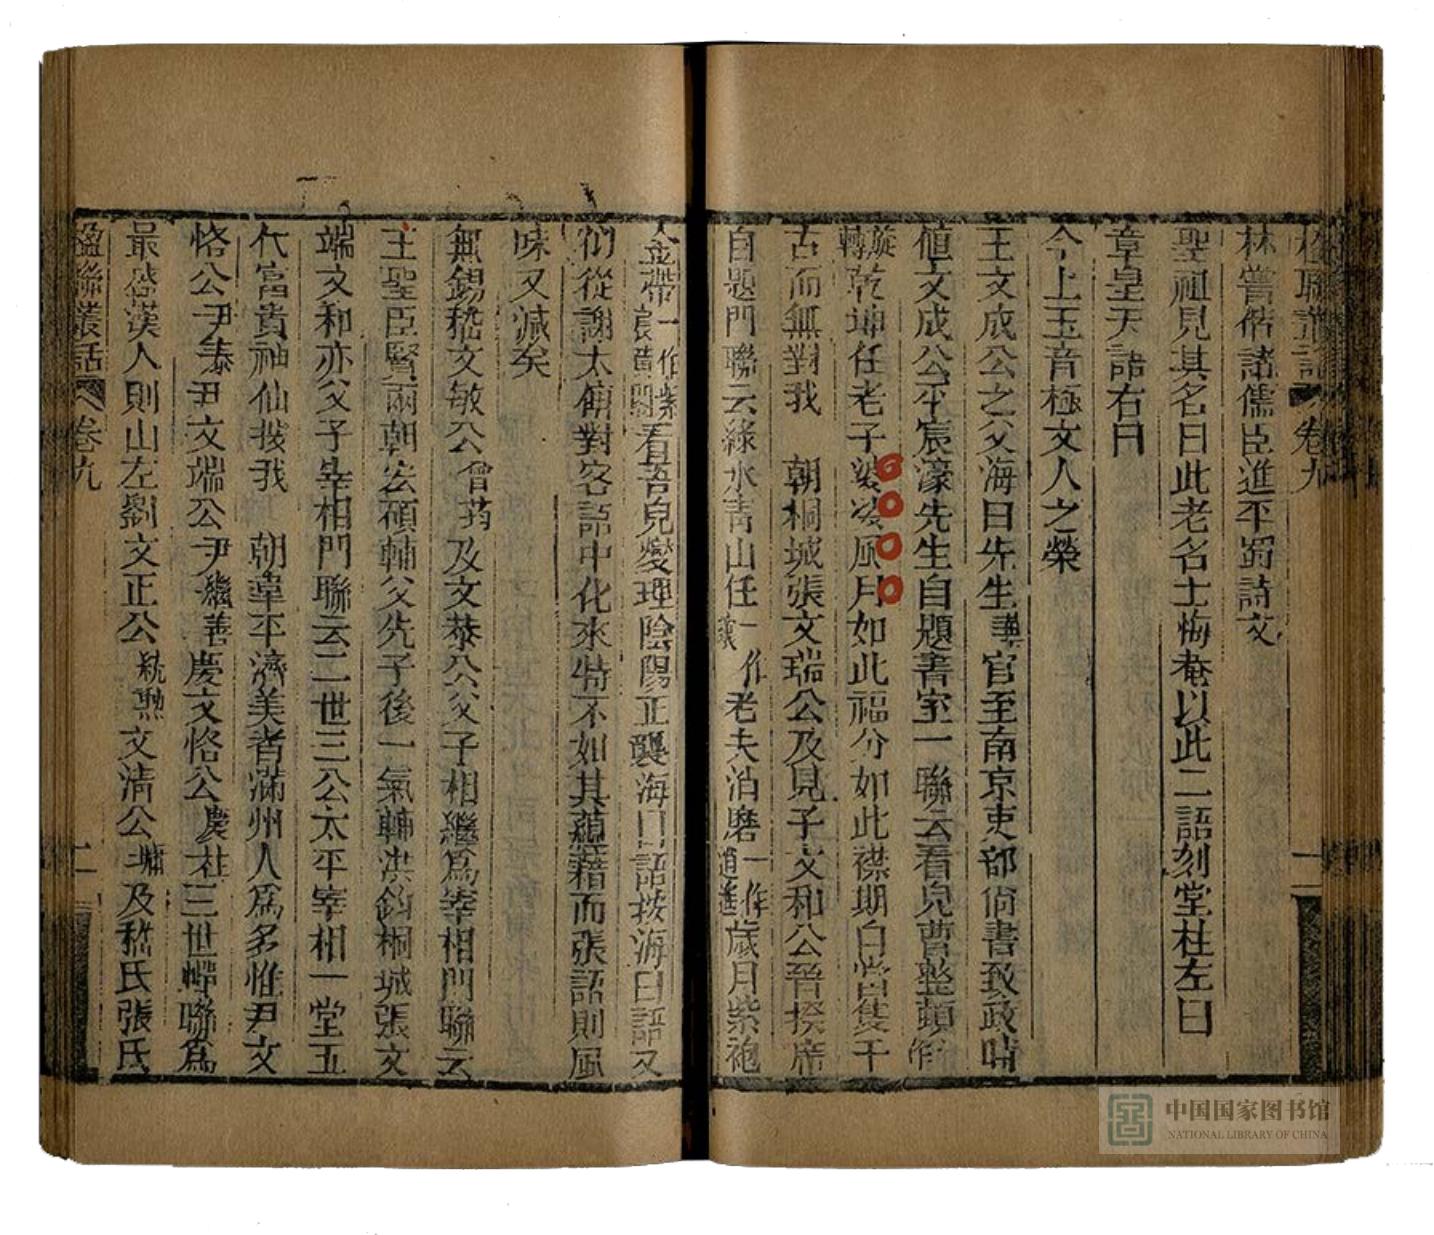 楹聯叢話 卷九 二
林嘗偕諸儒臣進平蜀詩文
聖祖見其名曰此老名士梅庵以此二語刻堂柱左曰
章皇天語右曰
今上玉音極文人之榮
王文成公之父海日先生華官至南京吏部尚書致政時
值文成公平宸濠先生自題書室一聯云看兒曹整頓作斡
旋一作轉乾坤任老子婆娑風月如此福分如此襟期自當隻千
古而無對我 朝桐城張文瑞公及見子文和公晉揆席
自題門聯云綠水青山任一作讓老夫消磨一作逍遙歲月紫袍
金帶一作黃閣看吾兒燮理陰陽正襲海日語按海日語又
從謝太傅對客語中化來特不如其蘊藉而張語則風
味又減矣
無錫嵇文敏公曾筠及文恭公父子相繼為宰相門聯云
王聖臣賢兩朝宏碩輔父先子後一氣轉洪鈞桐城張文
端文和亦父子宰相門聯云二世三公太平宰相一堂五
代富貴神仙我 朝韋平濟美者滿州人為多惟尹文
恪公尹泰尹文端公尹繼善慶文恪公慶桂三世蟬聯為
最盛漢人則山左劉文正公統勲文清公墉及嵇氏張氏
楹聯叢話 卷九 二
中国国家图书馆
NATIONAL LIBRARY OF CHINA